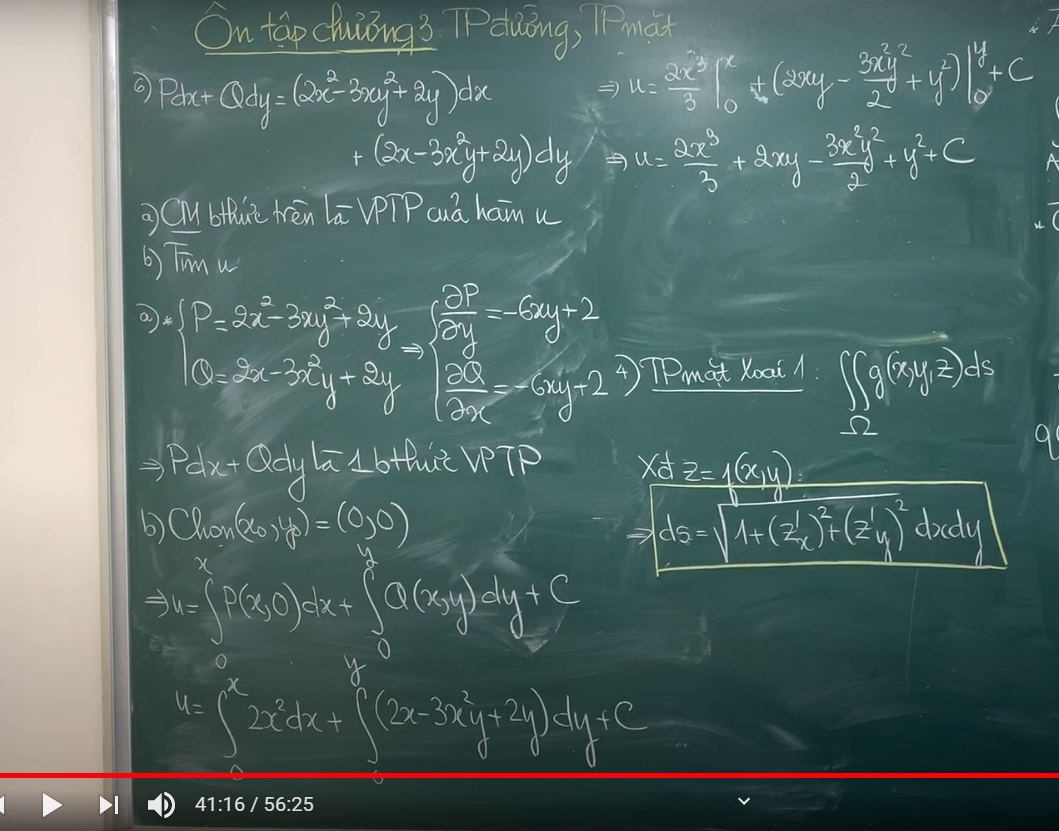 Ôn tập chương 3 TP đường, TP mặt
6) Pdx + Qdy = (2x² - 3xy² + 2y)dx
+ (2x - 3x²y + 2y)dy
a) CM bthức trên là VPTP của hàm u
b) Tìm u
a) * { P = 2x² - 3xy² + 2y ⇒ { ∂P/∂y = -6xy + 2
Q = 2x - 3x²y + 2y ∂Q/∂x = -6xy + 2
⇒ Pdx + Qdy là 1 bthức VPTP
b) Chọn (x₀, y₀) = (0, 0)
⇒ u = ∫₀ˣ P(x, 0)dx + ∫₀ʸ Q(x, y)dy + C
u = ∫₀ˣ 2x²dx + ∫₀ʸ (2x - 3x²y + 2y)dy + C
⇒ u = 2x³/3 |₀ˣ + (2xy - 3x²y²/2 + y²)|₀ʸ + C
⇒ u = 2x³/3 + 2xy - 3x²y²/2 + y² + C
4) TP mặt loại 1 : ∬_Ω g(x, y, z)ds
Xét z = f(x, y) :
⇒ ds = √(1 + (z'x)² + (z'y)²) dxdy
41:16 / 56:25